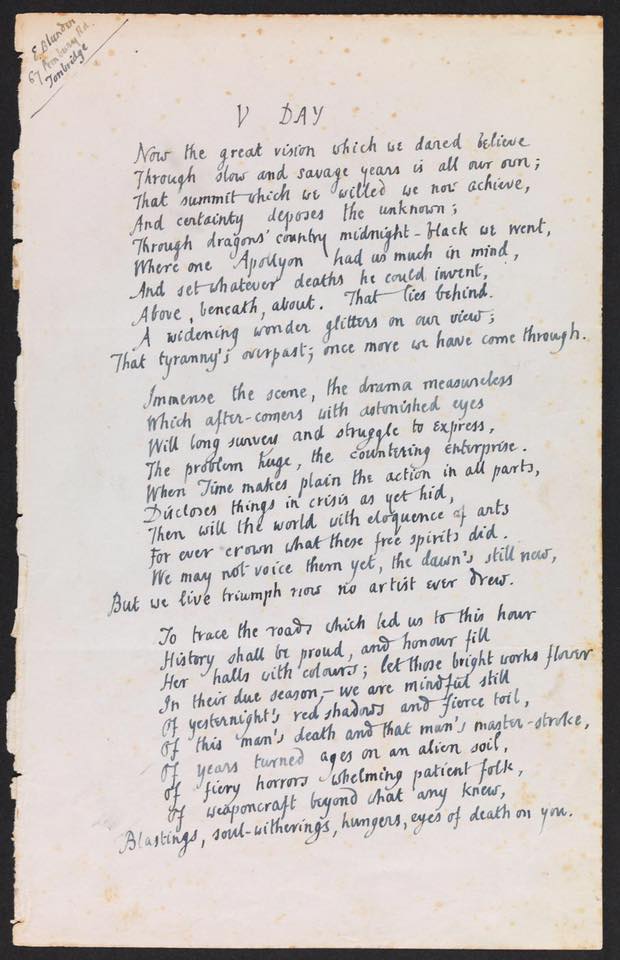 E. Blunden
67 Pembury Rd.
Tonbridge
V DAY
Now the great vision which we dared believe
Through slow and savage years is all our own;
That summit which we willed we now achieve,
And certainty deposes the unknown;
Through dragons' country midnight-black we went,
Where one Apollyon had us much in mind,
And set whatever deaths he could invent,
Above, beneath, about. That lies behind.
A widening wonder glitters on our view;
That tyranny's overpast; once more we have come through.
Immense the scene, the drama measureless
Which after-comers with astonished eyes
Will long survey and struggle to express,
The problem huge, the countering enterprise.
When Time makes plain the action in all parts,
Discloses things in crisis as yet hid,
Then will the world with eloquence of arts
For ever crown what these free spirits did.
We may not voice them yet, the dawn's still new,
But we live triumph now no artist ever drew.
To trace the roads which led us to this hour
History shall be proud, and honour fill
Her halls with colours; let those bright works flower
In their due season,– we are mindful still
Of yesternight's red shadows and fierce toil,
Of this man's death and that man's master-stroke,
Of years turned ages on an alien soil,
Of fiery horrors whelming patient folk,
Of weaponcraft beyond what any knew,
Blastings, soul-witherings, hungers, eyes of death on you.